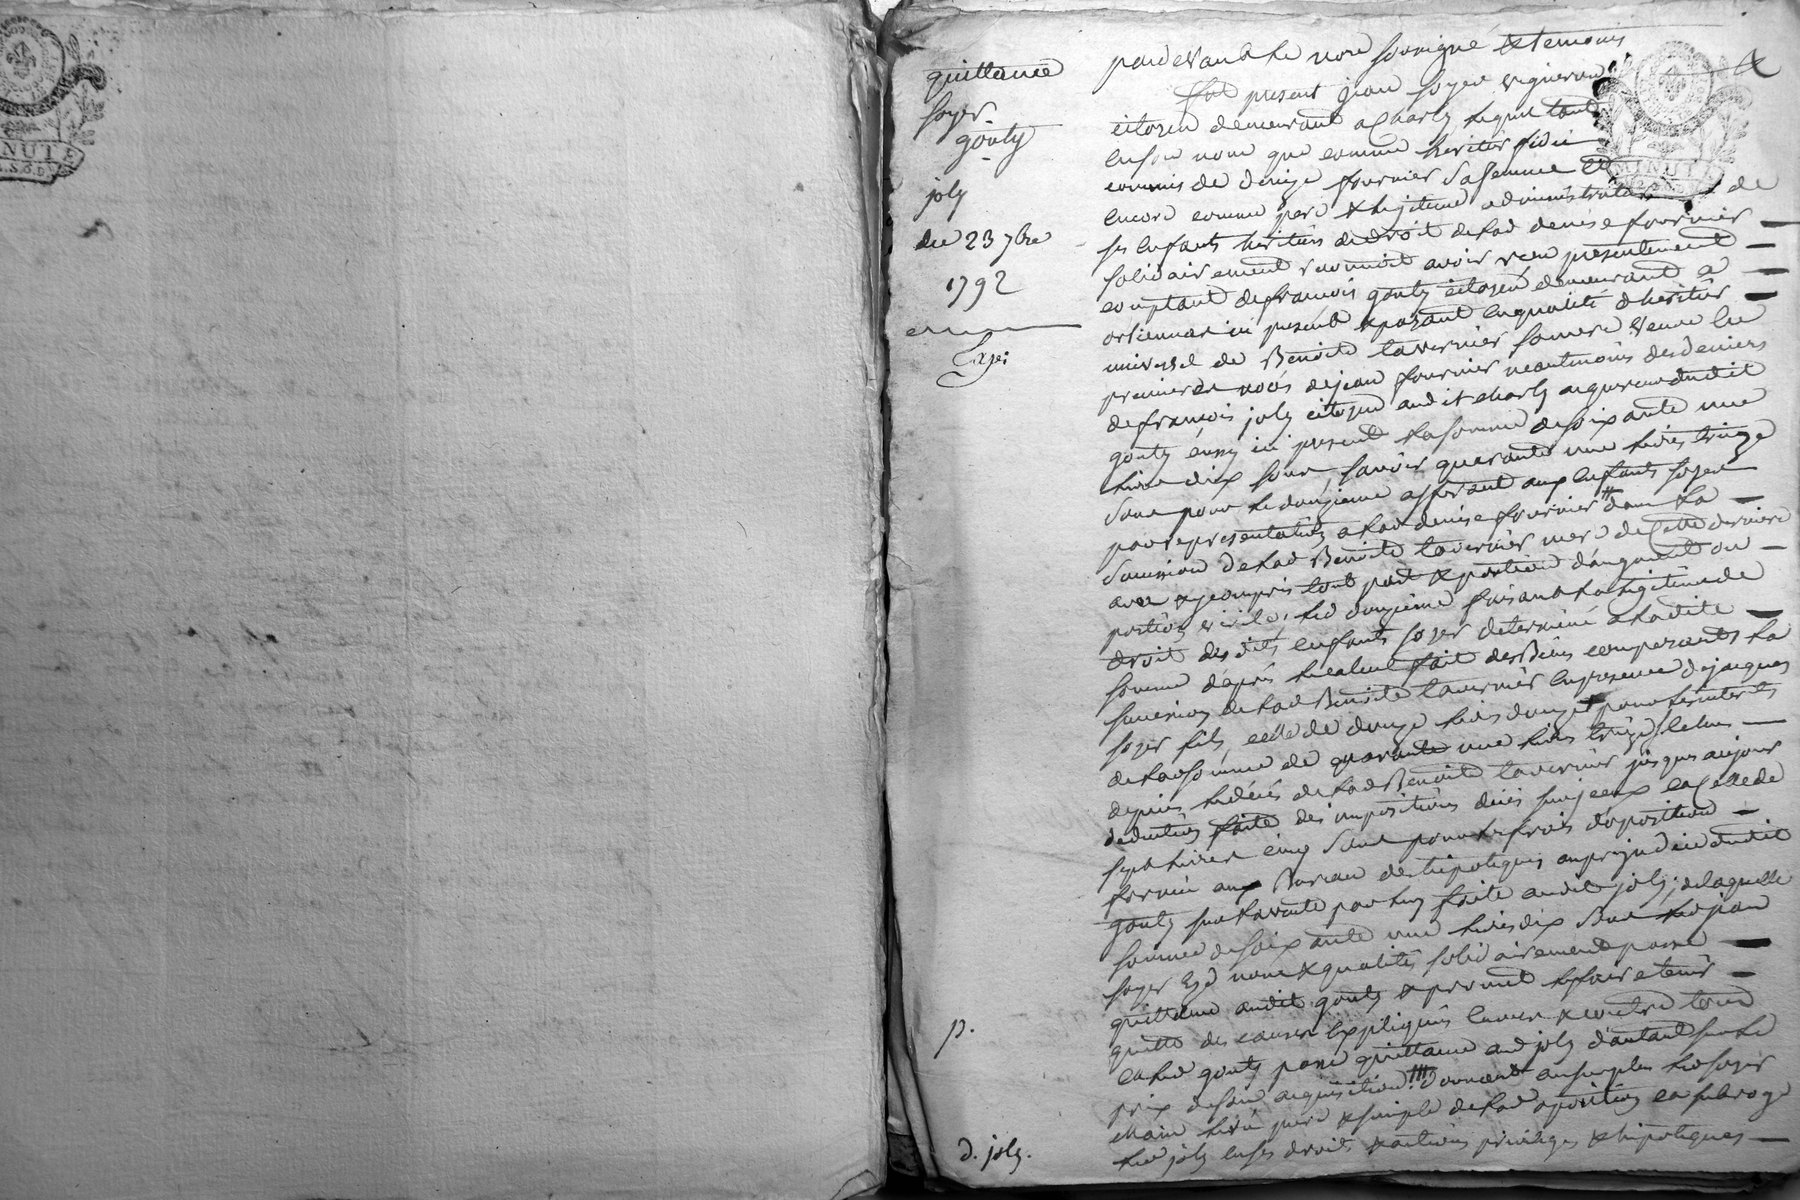 quittance
soyer
gouty
joly
du 23 7bre
1792
Exp:
pardevant le nore soussigné & temoins
fut present jean soyer vigneron
citoyen demeurant a Charly lequel tant
en son nom que comme heritier fidei
commis de denise fournier sa femme et
encore comme pere & legitime administrateur de
ses enfants heritiers de droit de lad denise fournier
solidairement reconnoit avoir reçu presentement
comptant de françois gouty citoyen demeurant a
ici present & payant en qualité d'heritier
universel de Benoite tavernier sa mere veuve en
premieres noces de jean fournier neantmoins des deniers
de françois joly citoyen audit charly acquereur dudit
gouty aussy ici present la somme de soixante une
livre dix sous, savoir quarante une livres treize
sous pour le douzieme afferant aux enfants soyer
par representation a lad denise fournier dans la
succession de lad Benoite tavernier mere de cette derniere
avec y compris tout part & portion d'augment ou
portion virile, led douzieme faisant la legitime de
droit des dits enfants soyer determiné a ladite
somme d'après le calcul fait des Biens composants la
succession de lad Benoite tavernier en presence de jacques
soyer fils, celle de douze livres douze pour les interets
de lad somme de quarante une livres treize echus
depuis le décés de lad Benoite tavernier jusques aujour
deduction faite des impositions et celle de
sept livres cinq sous pour les frais d'oposition
formée aux Bureau des hipoteques au prejudice dudit
gouty sur la vente par luy faite audit joly; de laquelle
somme de soixante une livres dix sous led jean
soyer esd noms & qualités solidairement passe
quittance audit gouty & promet le faire tenir
quitte des causes expliquées & contre tous
led gouty passe quittance aud joly d'autant sur le
prix de son acquisition donnant au surplus led soyer
main levée pure & simple de lad oposition en subroge
led joly en ses droits & actions privileges & hipoteques
p.
d. joly.